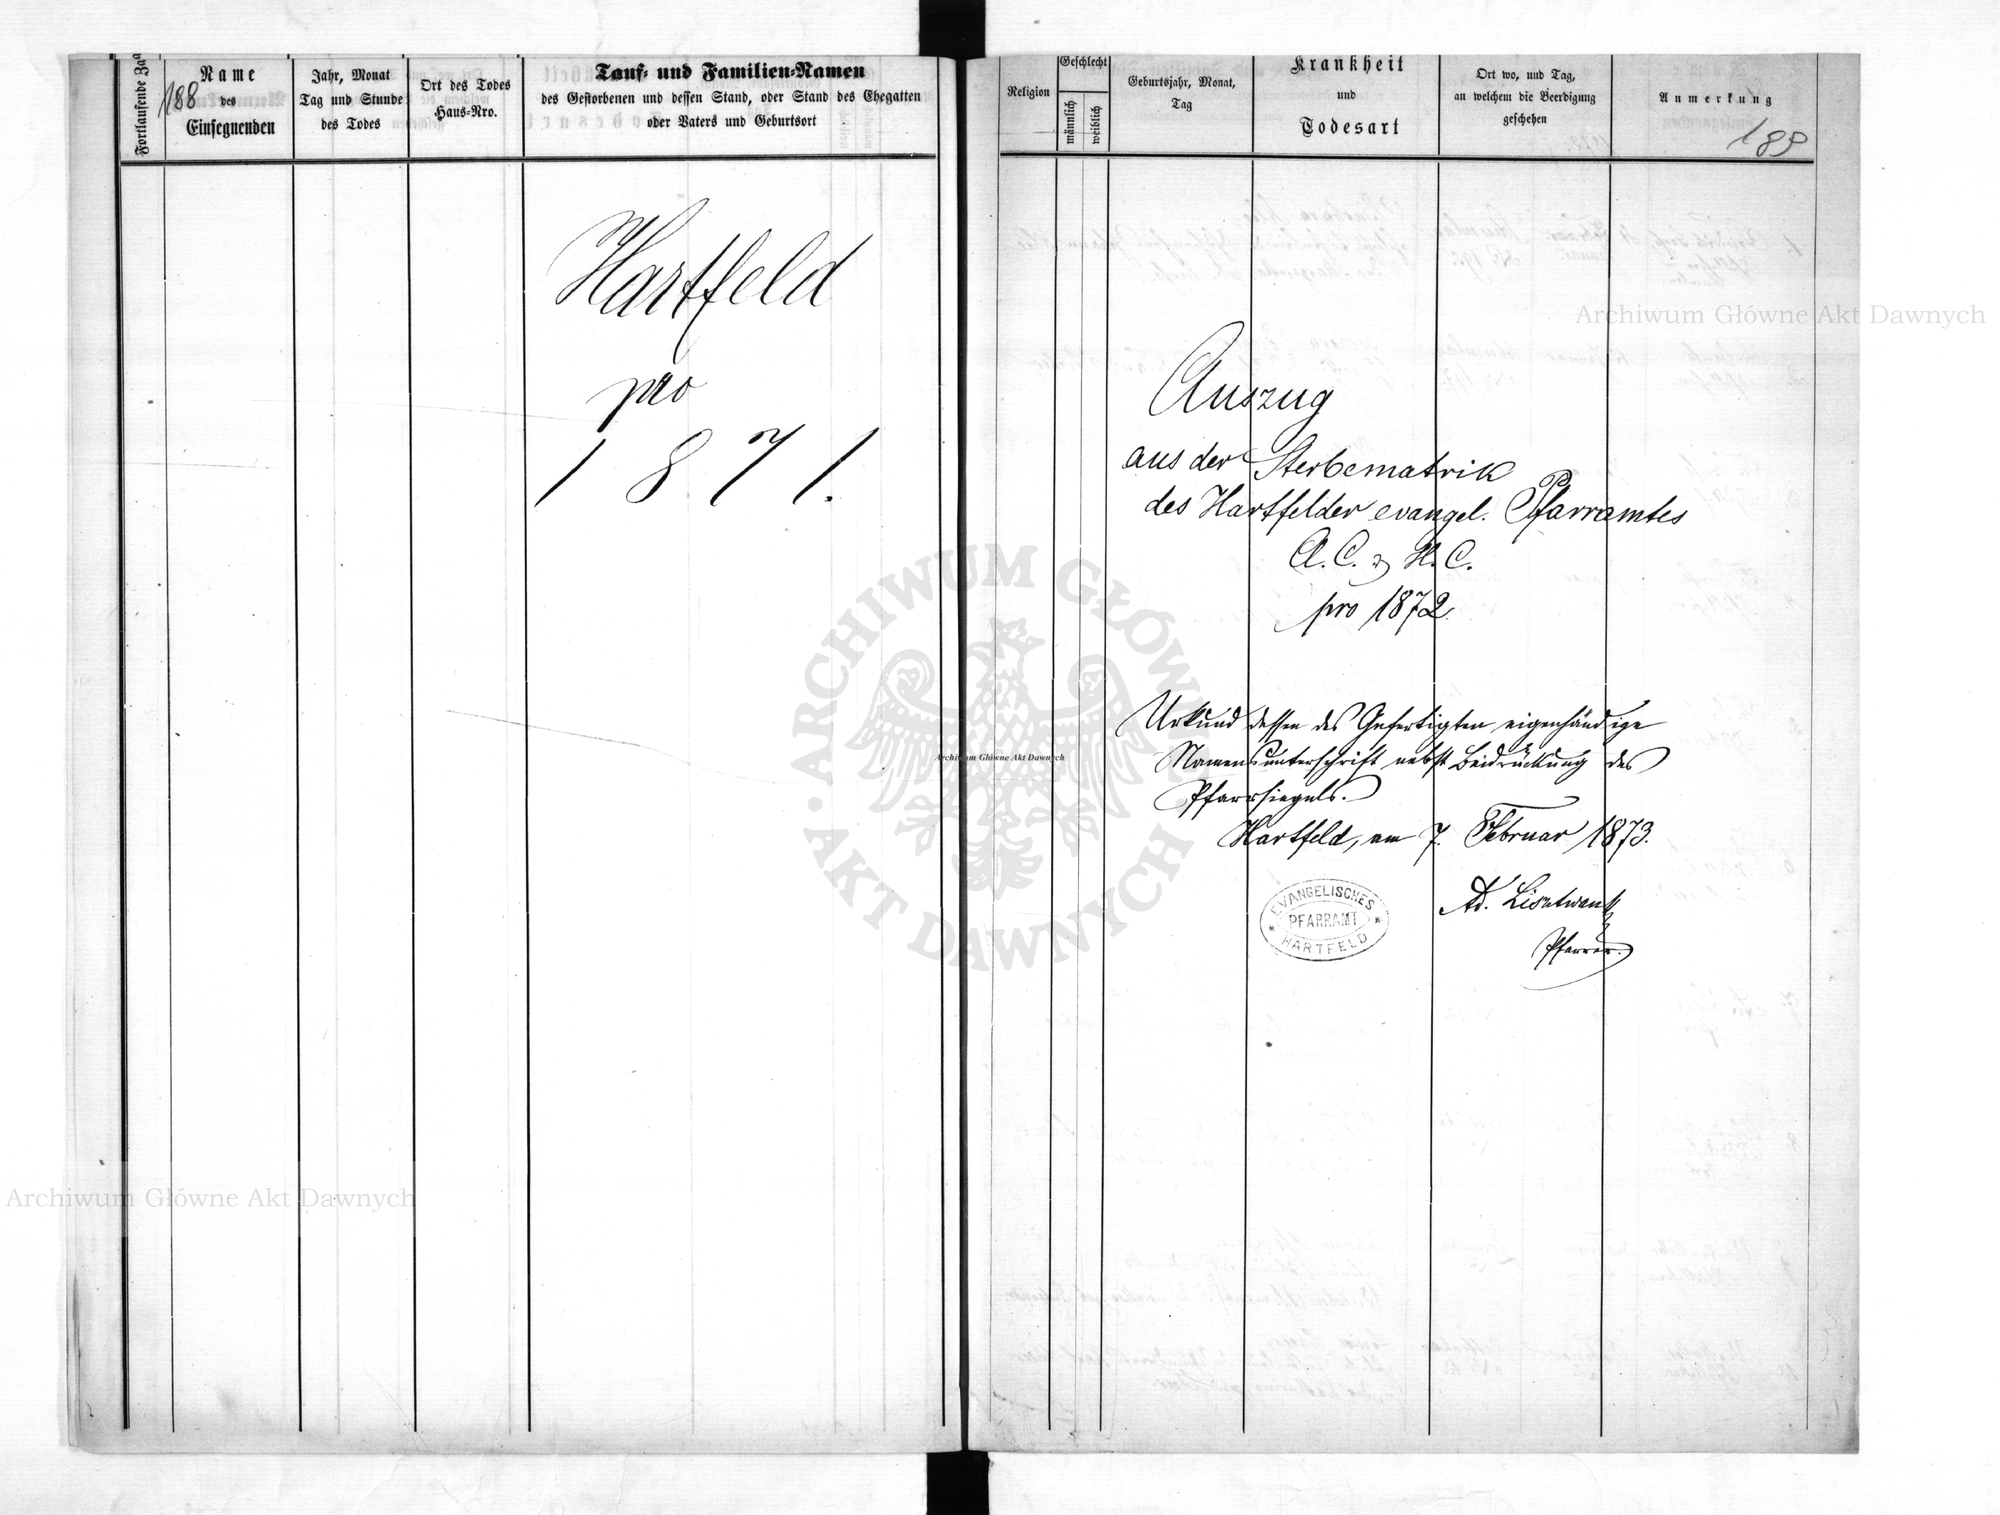 188
Fortlaufende Za
Name
des
Einsegnenden
Jahr, Monat
Tag und Stunde
des Todes
Ort des Todes
Haus-Nro.
Tauf- und Familien-Namen
des Gestorbenen und dessen Stand, oder Stand des Ehegatten
oder Vaters und Geburtsort
Hartfeld
pro
1871.
Religion
Geschlecht
männlich
weiblich
Geburtsjahr, Monat,
Tag
Krankheit
und
Todesart
Ort wo, und Tag,
an welchem die Beerdigung
geschehen
Anmerkung
189
Auszug
aus der Sterbematrik
des Hartfelder evangel. Pfarramtes
A. C. & H. C.
pro 1872.
Urkund dessen des Gefertigten eigenhändige
Namensunterschrift nebst Beidrückung des
Pfarrsiegels.
Hartfeld, am 7. Februar 1873.
Ad.
Pfarrer.
EVANGELISCHES
PFARRAMT
HARTFELD
Archiwum Główne Akt Dawnych
Archiwum Główne Akt Dawnych
Archiwum Główne Akt Dawnych
ARCHIWUM GŁÓWNE
AKT DAWNYCH